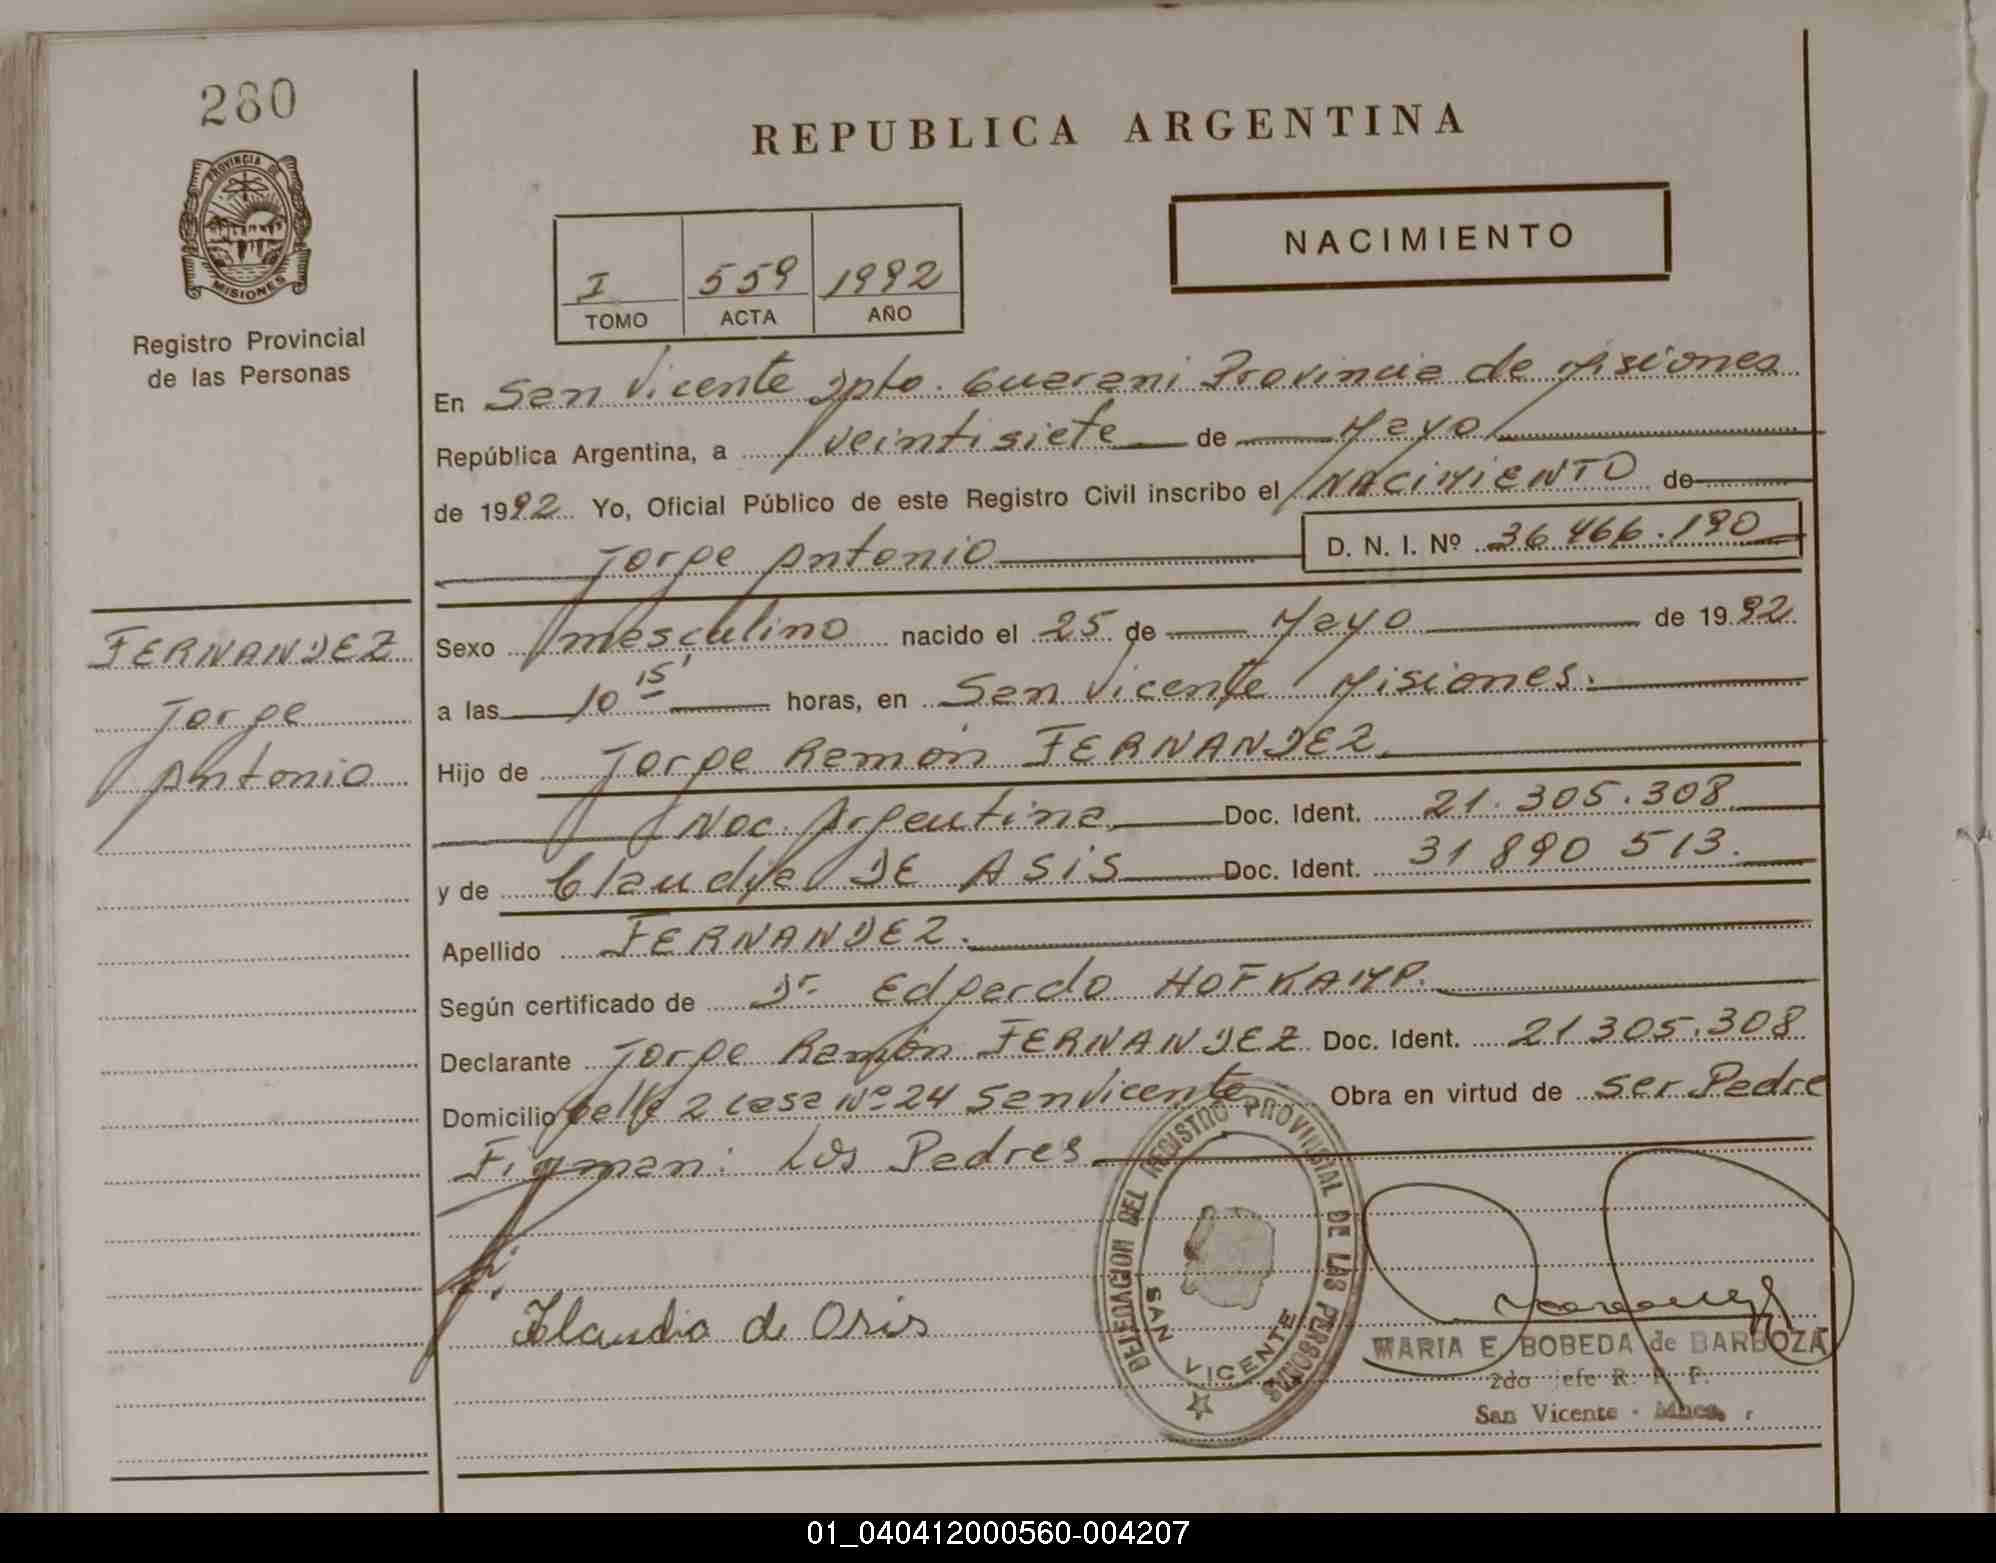 280
PROVINCIA DE
MISIONES
Registro Provincial
de las Personas
FERNANDEZ
Jorge
Antonio
REPUBLICA ARGENTINA
NACIMIENTO
I 559 1992
TOMO ACTA AÑO
En San Vicente Dpto. Guarani Provincia de Misiones
República Argentina, a veintisiete de Mayo
de 1992 Yo, Oficial Público de este Registro Civil inscribo el NACIMIENTO de
Jorge Antonio D. N. I. Nº 36 466.190
Sexo masculino nacido el 25 de Mayo de 1992
a las 10 15' horas, en San Vicente Misiones.
Hijo de Jorge Ramón FERNANDEZ
Nac. Argentina Doc. Ident. 21.305.308
y de Claudia DE ASIS Doc. Ident. 31 890 513.
Apellido FERNANDEZ.
Según certificado de Dr. Edgardo HOFKAMP.
Declarante Jorge Ramón FERNANDEZ Doc. Ident. 21 305.308
Domicilio Calle 2 casa Nº 24 San Vicente Obra en virtud de ser Padre
Firman: Los Padres
Klaudia de Osis
DELEGACION DEL REGISTRO PROVINCIAL DE LAS PERSONAS
SAN VICENTE
MARIA E. BOBEDA de BARBOZA
2do Jefe R. P. P.
San Vicente - Mnes.
01_040412000560-004207